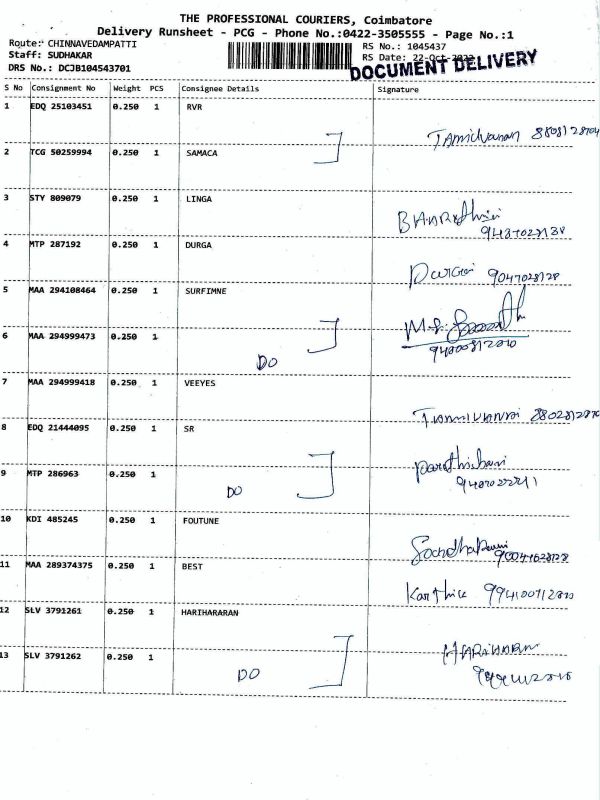 THE PROFESSIONAL COURIERS, Coimbatore
Delivery Runsheet - PCG - Phone No.:0422-3505555 - Page No.:1
Route: CHINNAVEDAMPATTI
RS No.: 1045437
Staff: SUDHAKAR
RS Date: 22-Oct-
DOCUMENT DELIVERY
DRS No.: DCJB104543701
S No Consignment No Weight PCS Consignee Details Signature
1 EDQ 25103451 0.250 1 RVR
2 TCG 50259994 0.250 1 SAMACA
3 STY 809079 0.250 1 LINGA
4 MTP 287192 0.250 1 DURGA
Durga 9047028128
5 MAA 294108464 0.250 1 SURFIMNE
6 MAA 294999473 0.250 1
DO
7 MAA 294999418 0.250 1 VEEYES
8 EDQ 21444095 0.250 1 SR
9 MTP 286963 0.250 1
DO
10 KDI 485245 0.250 1 FOUTUNE
11 MAA 289374375 0.250 1 BEST
Karthik
12 SLV 3791261 0.250 1 HARIHARARAN
HARIHARAN
13 SLV 3791262 0.250 1
DO